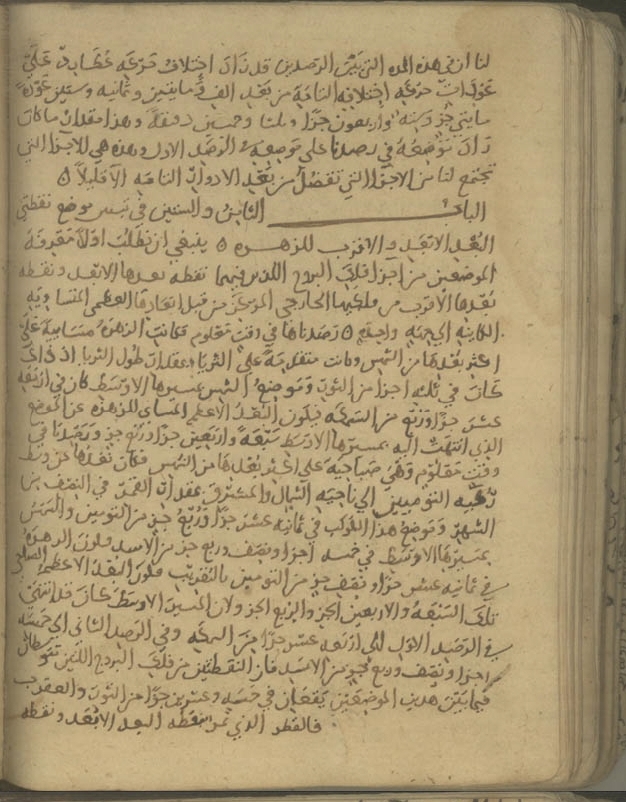 لنا ان في هذه المده التي بين الرصدين قد زادت اختلاف حركه عطارد على
عودات حركه اختلافه التامه من بعد الف ومايتين وثمانيه وستين عوده
مايتي جز وسته واربعون جزا وثلثا وخمسين دقيقه وهذا مقدار ما كان
زاد توضعه في رصدنا على موضعه في الرصد الاول وهذه هي للاجزا التي
تجتمع لنا من الاجزا التي تفضل من بعد الادوار التامه الا قليلا
الباب الثامن والستين في تبيين موضع نقطتي
البعد الابعد والاقرب للزهره ينبغي ان نطلب اولا معرفه
الموضعين من اجزا فلك البروج اللذين فيهما نقطه بعدها الابعد ونقطه
بعدها الاقرب من فلكها الخارجي المركز من قبل ابعادها العظمى المتساويه
الكاينه الي جهه واحده رصدناها في وقت معلوم فكانت الزهره مسايية على
اكثر بعدها من الشمس وكانت متقدمه على الثريا بمقدار طول الثريا اذ ذاك
كان في ثلثه اجزا من الثور وموضع الشمس بمسيرها الاوسط كان في اربعه
عشر جزا وربع من السمكه فيكون البعد الاعظم المساى للزهره عن الموضع
الذي انتهت اليه بمسيرها الاوسط سبعه واربعين جزا وربع جز ورصدنا في
وقت معلوم وهي صباحيه على اكثر بعدها من الشمس فكان بعدها عن وسط
ركبه التوميين الي ناحيه الشمال والمشرق بمقدار القمر في النصف من
الشهر وموضع هذا الكوكب في ثمانيه عشر جزا وربع جز من التومين والشمس
بمسيرها الاوسط في خمسه اجزا ونصف وربع جز من الاسد فتكون الزهره
في ثمانيه عشر جزا ونصف جز من التومين بالتقريب فلان البعد الاعظم
تلك السبعه والاربعين الجز والربع الجز ولان المسير الاوسط كان قد انتهى
في الرصد الاول الى اربعه عشر جزا من السمكه وفي الرصد الثاني الي خمسه
اجزا ونصف وربع جز من الاسد فان النقطتين من فلك البروج اللتين
فيما بين هذين الموضعين يقعان في خمسه وعشرين جزا من الثور والعقرب
فالقطر الذي يمر بنقطه البعد الابعد ونقطه